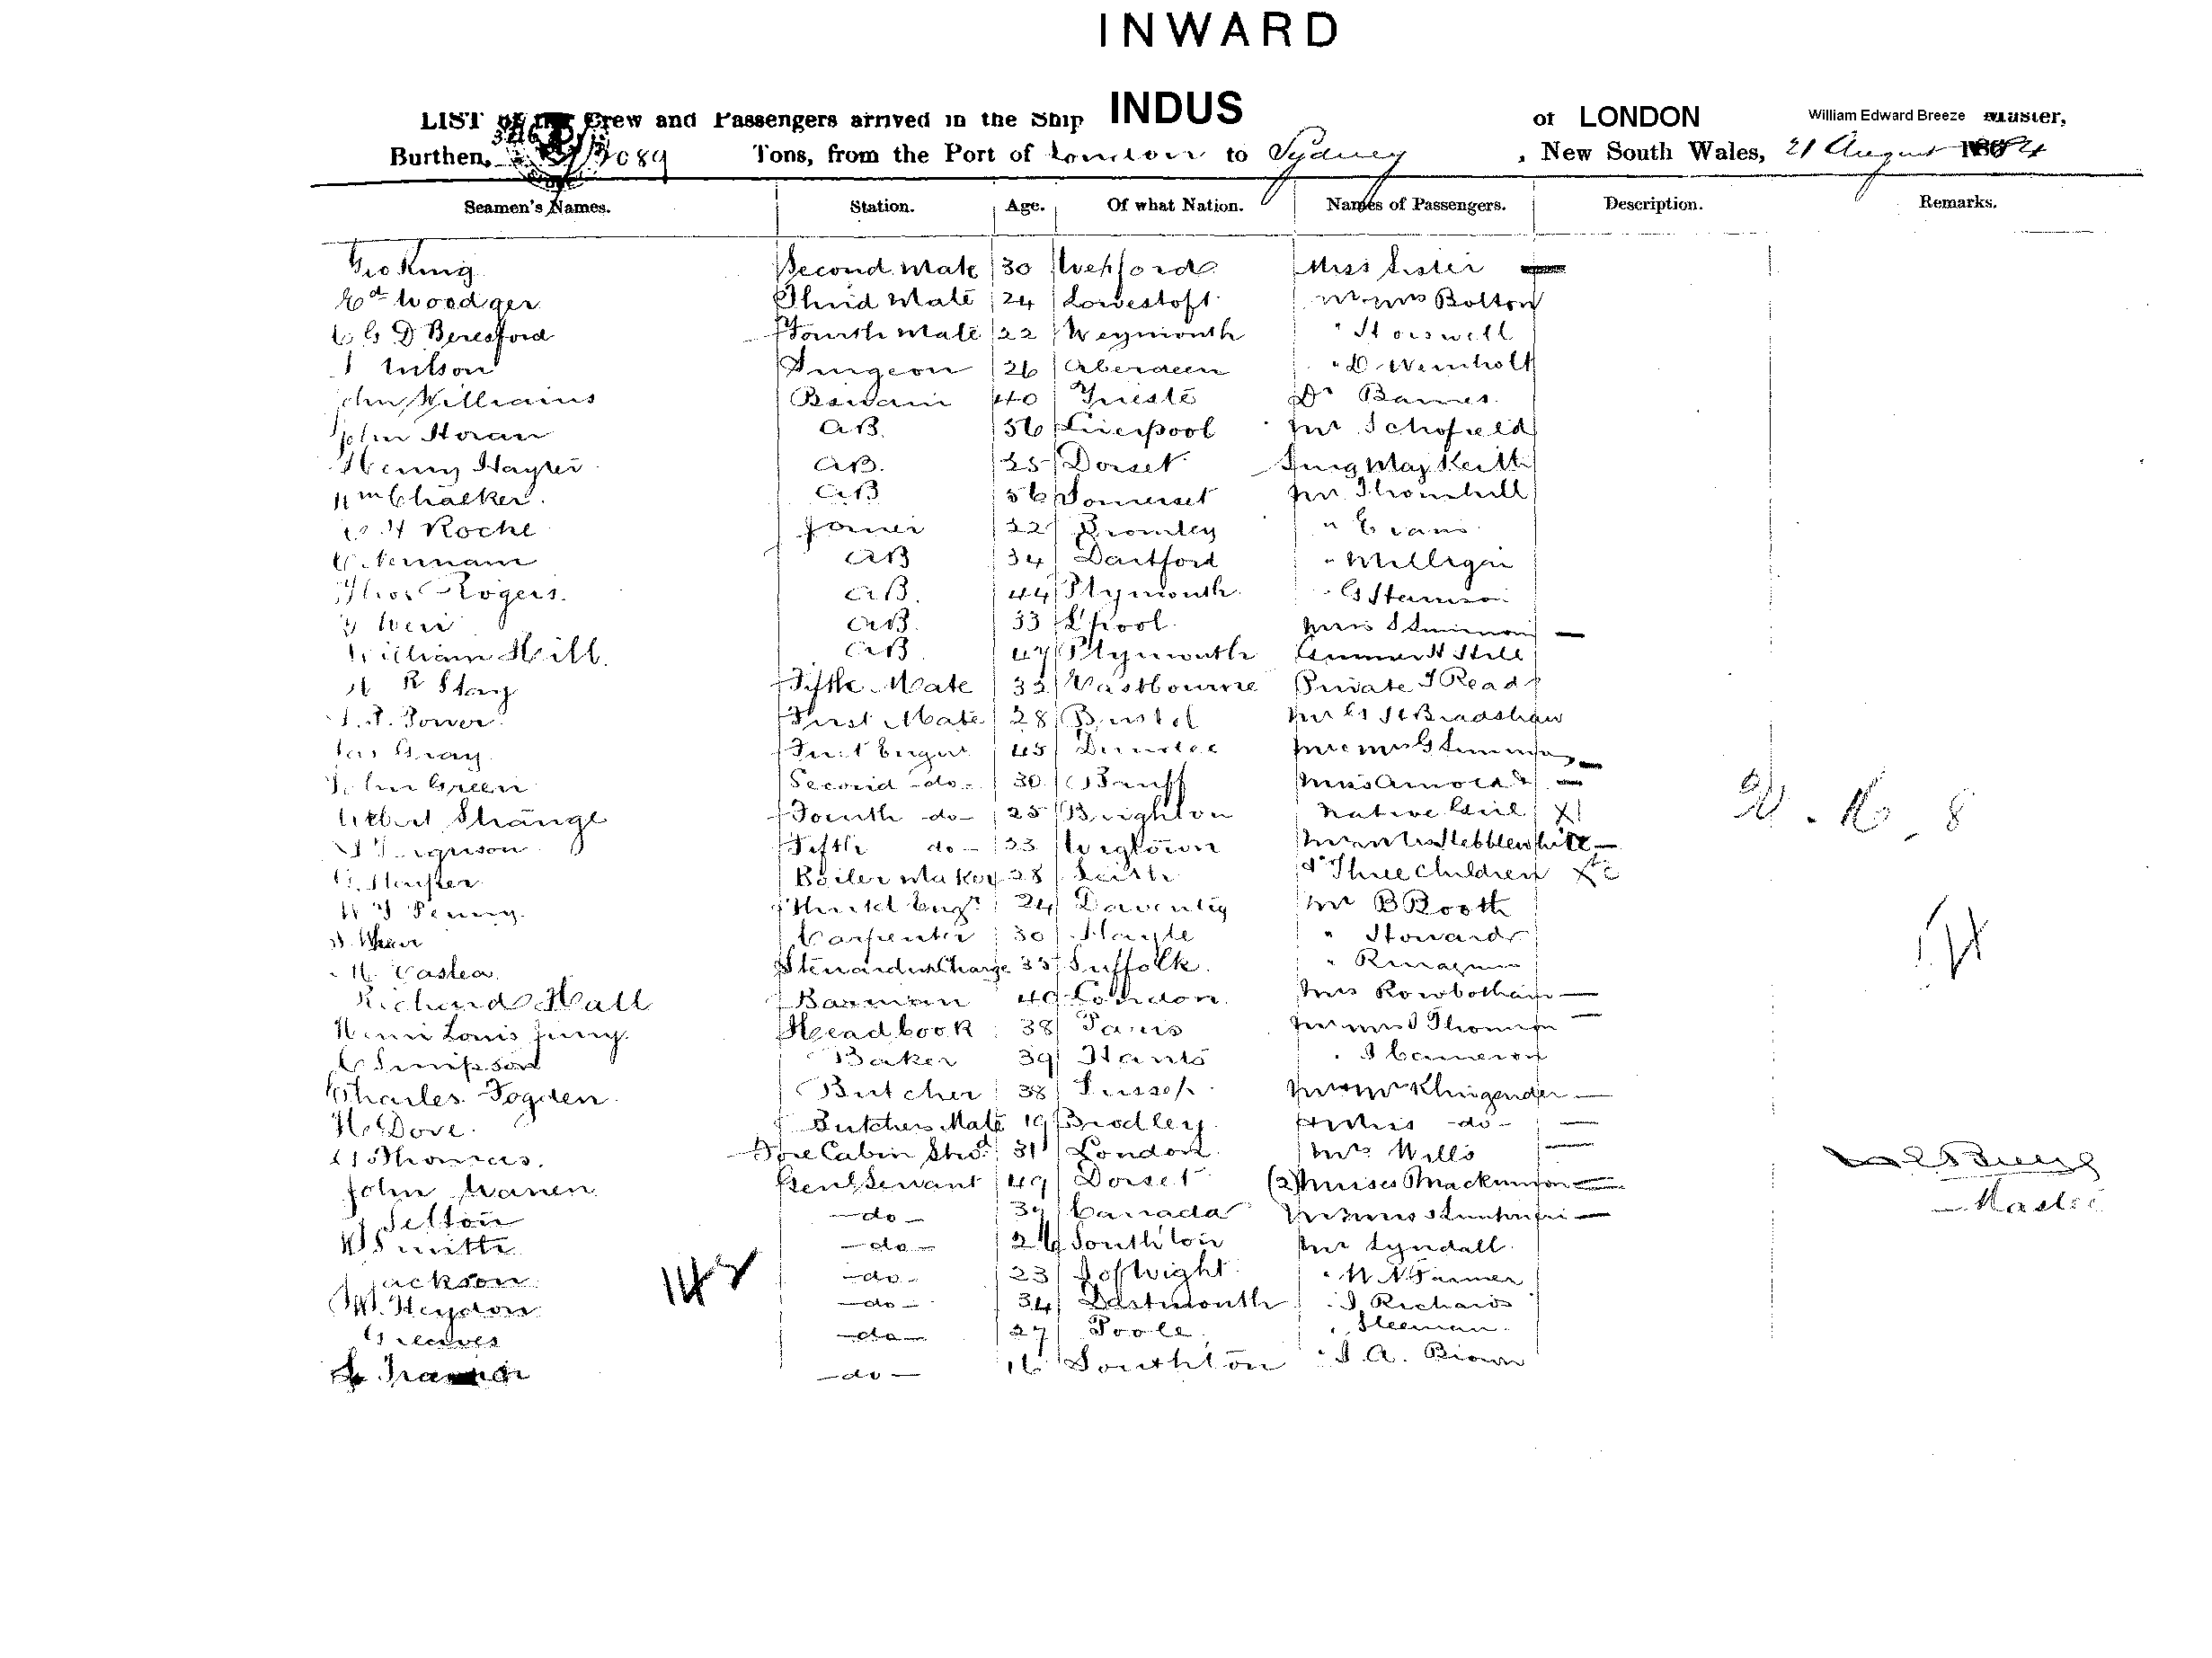 INWARD
LIST of the Crew and Passengers arrived in the Ship INDUS of LONDON William Edward Breeze Master,
Burthen, Tons, from the Port of London to Sydney, New South Wales, 21 August 1884
Seamen's Names. Station. Age. Of what Nation. Names of Passengers. Description. Remarks.
Geo King Second Mate 30 Wexford Miss Lister
Ed Woodger Third Mate 24 Lowestoft Mr Mrs Bolton
C G D Beresford Fourth Mate 22 Weymouth " Horswell
Wilson Surgeon 26 Aberdeen " D Weinholt
John Williams Boswain 40 Trieste Dr Barnes
John Horan AB. 56 Liverpool Mr Schofield
Henry Hayter AB. 25 Dorset Surg Maj Keith
Wm Chalker. AB 56 Somerset Mr Thornhill
H Roche Joiner 22 Bromley " Evans
AB 34 Dartford " Milligan
Thos Rogers. AB. 44 Plymouth " G Harrison
Weir AB. 33 L'pool Mrs Simmons
William Hill. AB 47 Plymouth Gunner H Hill
H R Stay Fifth Mate 32 Eastbourne Private J Read
Power. First Mate 28 Bristol Mr G H Bradshaw
Jas Gray First Engr 45 Dundee Mr & Mrs G Simmons
John Green Second -do- 30 Banff Miss Arnold
Albert Strange Fourth -do- 25 Brighton Native Girl X1
Ferguson Fifth do- 23 Wigtown Mr & Mrs Hebblewhite
G. Hunter Boiler Maker 28 Leith & Three Children
W J Penny. Third Engr 24 Daventry Mr B Booth
Carpenter 30 Hayle " Howard
Steward in Charge 35 Suffolk.
Richard Hall Barman 40 London. Mrs Rowbotham
Henri Louis Jung. Head Cook 38 Paris Mr Mrs J Thomson
C Simpson Baker 39 Hants " J Cameron
Charles Fogden. Butcher 38 Sussex Mr & Mrs Klingender
H Dove. Butchers Mate 19 Bradley. Miss -do-
Thomas. Fore Cabin Stwd 31 London. Mrs Wills
John Warren Genl Servant 49 Dorset (2) Misses Mackinnon
Selton -do- 39 Canada
W Smith -do- 26 South'ton Mr Lyndall.
Jackson -do- 23 I of Wight " W N Farmer
W. Heydon -do- 34 Dartmouth " J Richards
Greaves -do- 27 Poole. " Sleeman.
-do- 16 South'ton " J. A. Brown
W E Breeze
Master